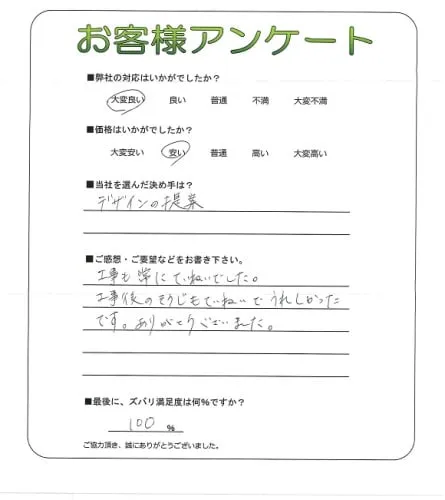 お客様アンケート
■弊社の対応はいかがでしたか？
大変良い 良い 普通 不満 大変不満
■価格はいかがでしたか？
大変安い 安い 普通 高い 大変高い
■当社を選んだ決め手は？
デザインの提案
■ご感想・ご要望などをお書き下さい。
工事も常にていねいでした。
工事後のそうじもていねいで うれしかった
です。ありがとうございました。
■最後に、ズバリ満足度は何%ですか？
100 %
ご協力頂き、誠にありがとうございました。